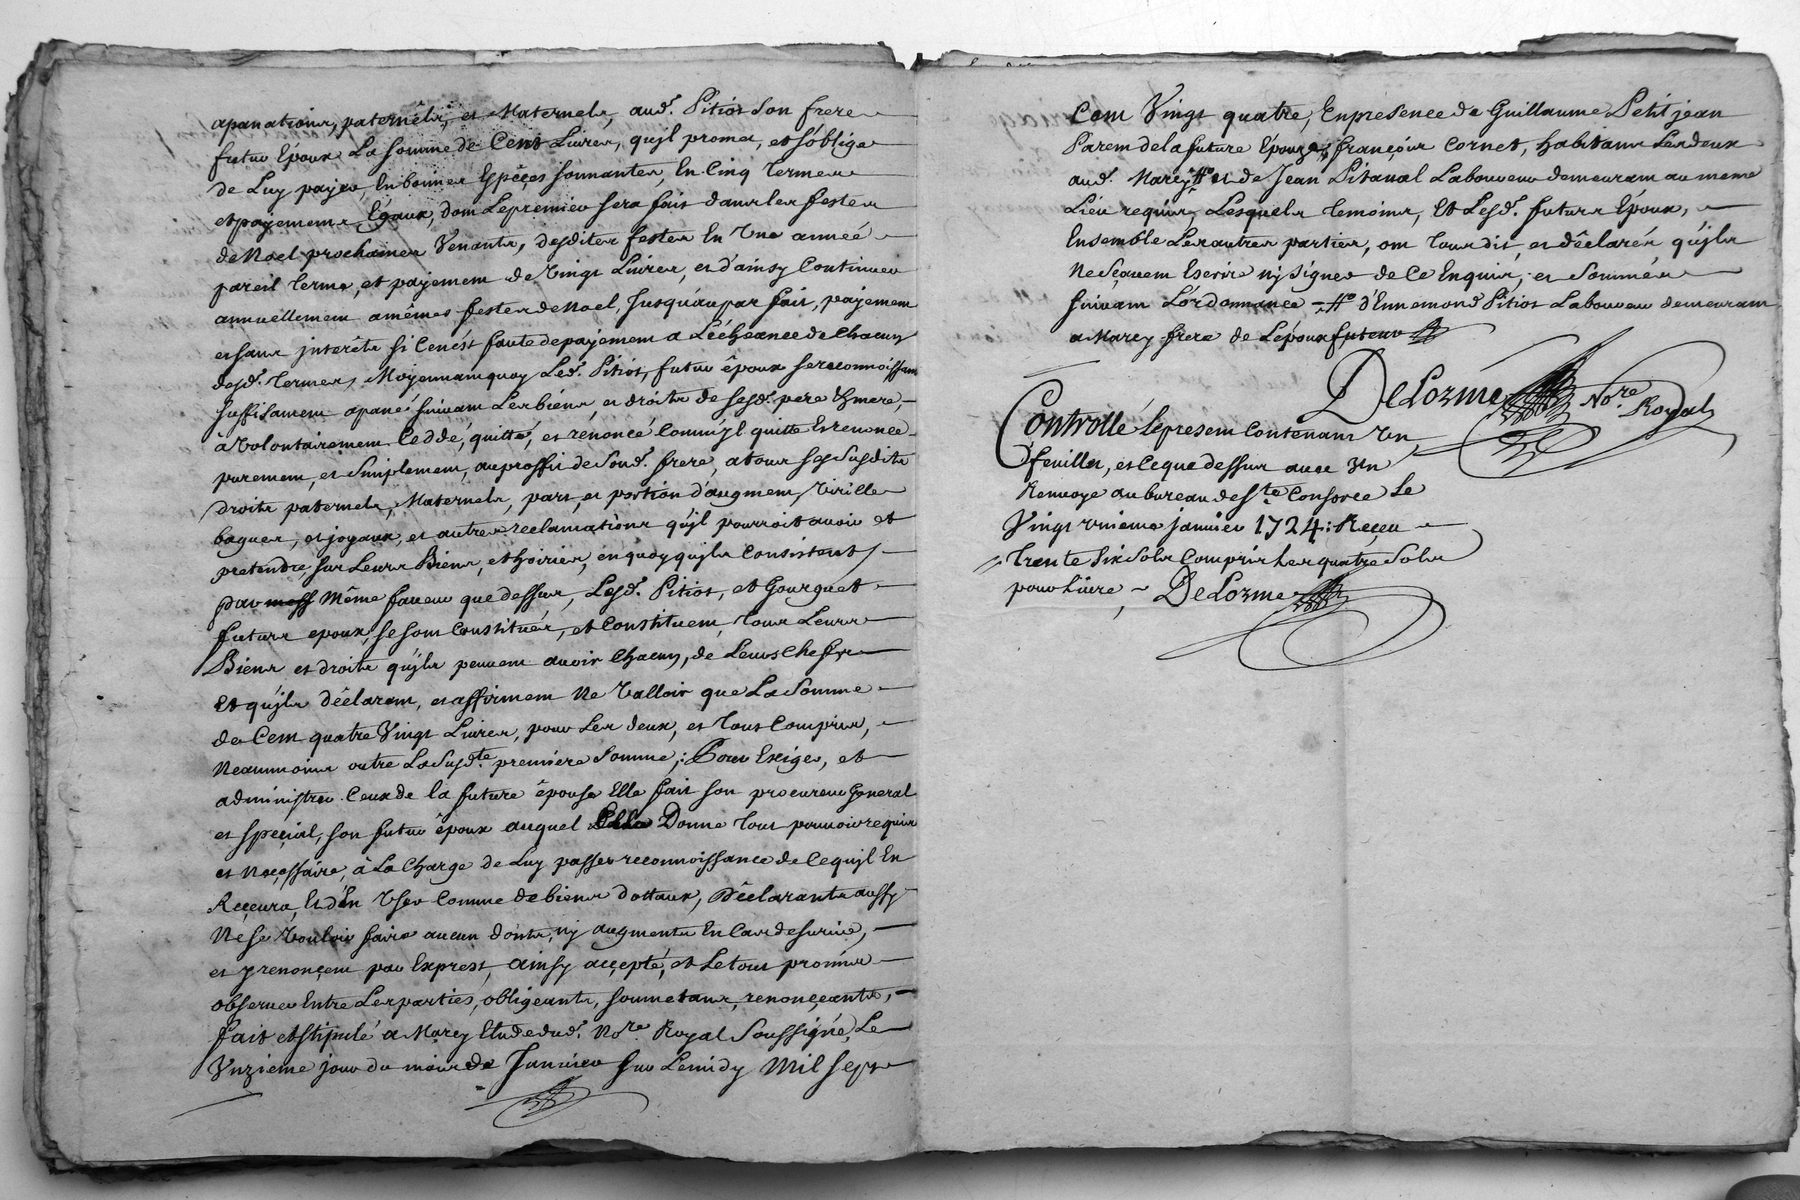 apanations, paternels, et Maternels, aud.t Pitiot son frere
futur Epoux La somme de Cent Livres, qujl promet, et s'oblige
de Luy payer, En bonnes Espèces sonnantes, En Cinq Termes
et payements Egaux, dont Le premier sera fait dans les festes
de Noel prochaines Venants, desdites festes En Une année
pareil Terme, et payement de Vingt Livres, et d'ainsy Continuer
annuellement a mêmes festes de Noel, Jusqu'au parfait, payement
et sans jnterêts si Ce n'ést faute de payement a L'écheance de Chacun
desd.t Termes, Moÿennant quoy Led.t Pitiot, futur époux se reconnoissant
suffisament apané suivant Les biens, et droits de sesd.t pere & mere,
à Volontairement Ceddé, quitté, et renoncé Comm'jl quitte Et renonce
purement, et Simplement, au proffit de Sond.t frere, a tous ses Susdits
droits paternels, Maternels, part, et portion d'augment, Virille
bagues, et joyaux, et autres reclamations qu'jl pourroit avoir et
pretendre, sur Leurs Biens, et hoiries, en quoy qu'jls Consistent /
par Même faveur que dessus, Lesd.t Pitiot, et Gourguet
futurs epoux, se sont Constitués, et Constituent, Tous Leurs
Biens et droits qu'jls peuvent avoir Chacun, de Leurs Chefs
Et qu'jls déclarent, et affirment Ne Valloir que La Somme
de Cent quatre Vingt Livres, pour Les deux, et Tout Compris,
Neanmoins outre La Susd.te premiere Somme; Pour Exiger, et
administrer Ceux de la future épouse Elle fait son procureur General
et spécial, son futur époux auquel Elle Donne Tout pouvoir requis
et Necessaire, à La Charge de Luy passer reconnoissance de Ce qujl En
Reçeura, Et d'En User Comme de biens dottaux, Déclarants aussy
Ne se Vouloir faire aucun dons, nÿ augments En Cas de survie,
et y renonçent par Exprest, ainsy accepté, et Le tout promis
observer Entre Les parties, obligeants, soumetans, renonçeants,
fait et stipulé a Marcy Etude dud.t No.re Royal Soussigné, Le
Vnzieme jour du mois de Janvier Sur Le midy Mil sept
Cent Vingt quatre, En presence de Guillaume Petitjean
Parent de la future Epouze, françois Cornet, habitans Les deux
aud.t Marcy et de Jean Pitaval Laboureur demeurant au meme
Lieu requis, Lesquels Temoins, Et Lesd.t futurs Epoux,
Ensemble Les autres parties, ont Tous dit, et déclarés qu'jls
Ne Sçavent Escrire nÿ signer de Ce Enquis, et Sommés
suivant L'ordonnance d'Ennemond Pitiot Laboureur demeurant
a Marcy frere de L'époux futeur
DeLorme No.re Royal
Controllé Le present Contenant Un
feuillet, et Ce que dessus avec Un
Renvoye au bureau de S.te Consorce Le
Vingt unieme janvier 1724: Receu
Trente Six Sols Compris Les quatre Sols
pour Livre, DeLorme